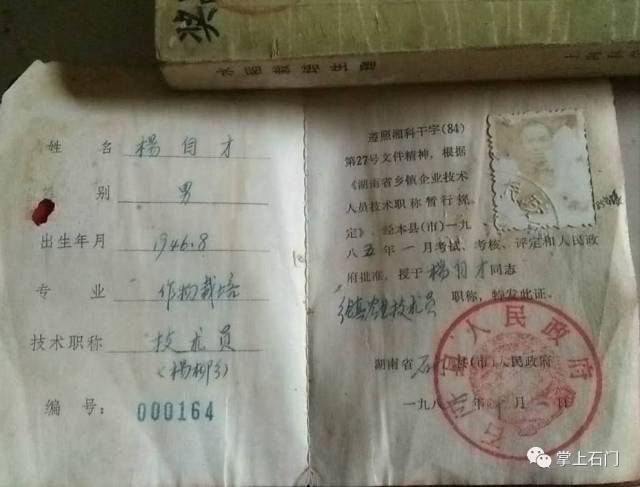 奖
水稻栽培生理
姓 名 杨自才
性 别 男
出生年月 1946.8
专 业 作物栽培
技术职称 技术员
(杨柳乡)
编 号: 000164
遵照湘科干字(84)
第27号文件精神,根据
《湖南省乡镇企业技术
人员技术职称暂行规
定》、经本县(市)一九
八五年一月考试、考核、评定和人民政
府批准,授于杨自才同志
技术员 职称,特发此证。
湖南省石门县(市)人民政府
一九八 年 月 日
石门县人民政府
掌上石门